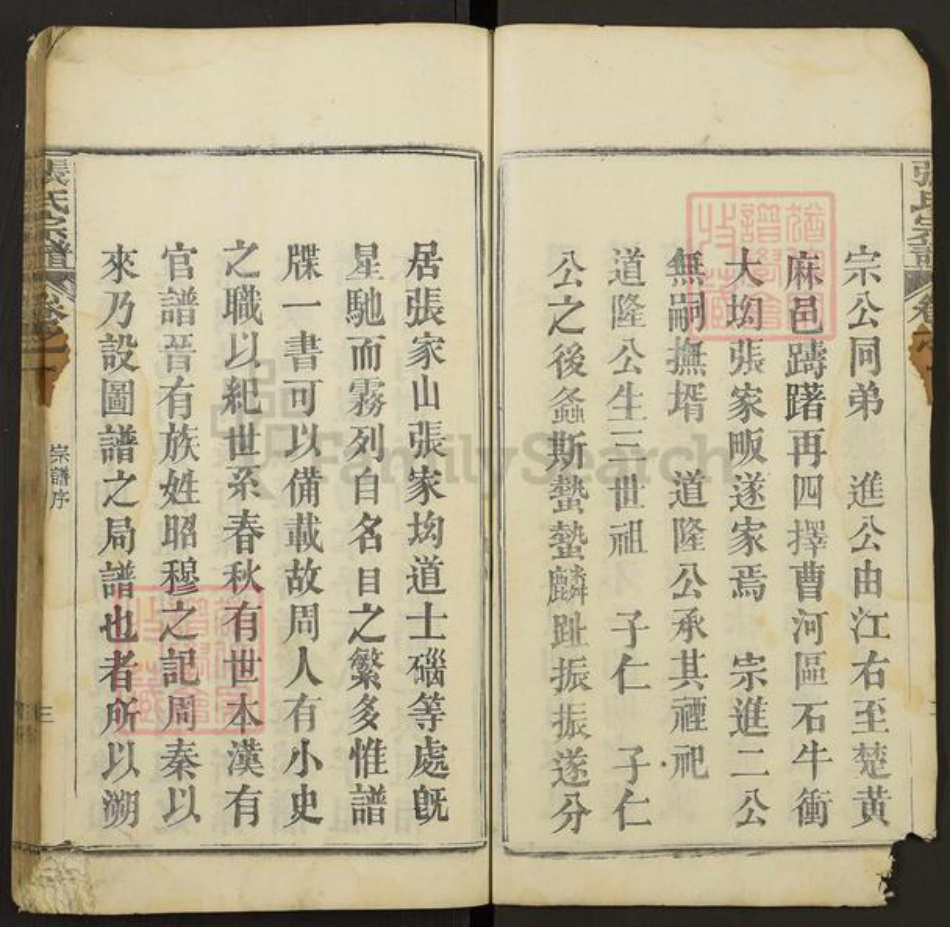 宗公同弟　進公由江右至楚黃
麻邑躊躇再四擇曹河區石牛衝
大㘭張家畈遂家焉　宗進二公
無嗣撫壻　道隆公承其禋祀
道隆公生三世祖　子仁　子仁
公之後螽斯蟄蟄麟趾振振遂分
居張家山張家㘭道士磘等處旣
星馳而霧列自名目之繁多惟譜
牒一書可以備載故周人有小史
之職以紀世系春秋有世本漢有
官譜晉有族姓昭穆之記周秦以
來乃設圖譜之局譜也者所以溯
張氏宗譜
宗譜序
三
FamilySearch